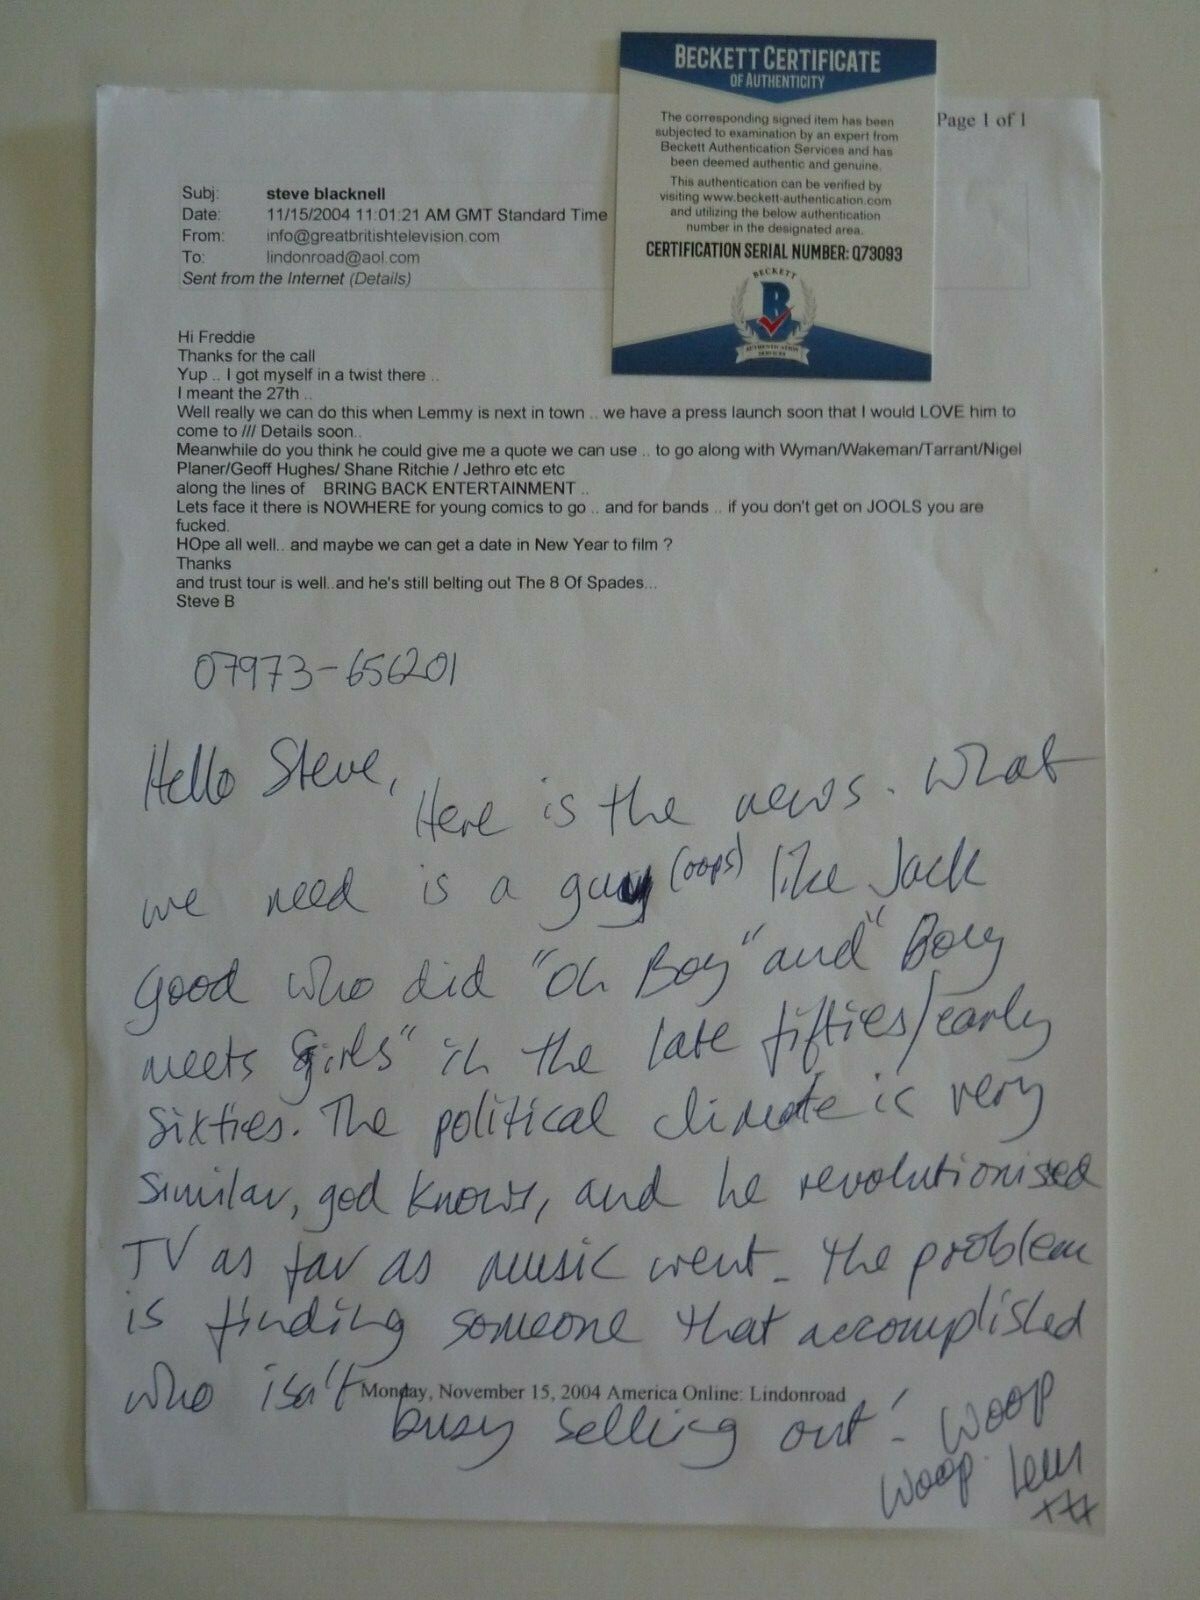 BECKETT CERTIFICATE
OF AUTHENTICITY
The corresponding signed item has been
subjected to examination by an expert from
Beckett Authentication Services and has
been deemed authentic and genuine.
This authentication can be verified by
visiting www.beckett-authentication.com
and utilizing the below authentication
number in the designated area.
CERTIFICATION SERIAL NUMBER: Q73093
BECKETT
B
AUTHENTICATION
SERVICES
Page 1 of 1
Subj: steve blacknell
Date: 11/15/2004 11:01:21 AM GMT Standard Time
From: info@greatbritishtelevision.com
To: lindonroad@aol.com
Sent from the Internet (Details)
Hi Freddie
Thanks for the call
Yup .. I got myself in a twist there ..
I meant the 27th ..
Well really we can do this when Lemmy is next in town .. we have a press launch soon that I would LOVE him to
come to /// Details soon..
Meanwhile do you think he could give me a quote we can use .. to go along with Wyman/Wakeman/Tarrant/Nigel
Planer/Geoff Hughes/ Shane Ritchie / Jethro etc etc
along the lines of BRING BACK ENTERTAINMENT ..
Lets face it there is NOWHERE for young comics to go .. and for bands .. if you don't get on JOOLS you are
fucked.
HOpe all well.. and maybe we can get a date in New Year to film ?
Thanks
and trust tour is well..and he's still belting out The 8 Of Spades...
Steve B
07973-656201
Hello Steve,
Here is the news. What
we need is a guy (oops) like Jack
Good who did "Oh Boy" and "Boy
meets Girls" in the late fifties/early
Sixties. The political climate is very
similar, god knows, and he revolutionised
TV as far as music went - the problem
is finding someone that accomplished
who isn't
Monday, November 15, 2004 America Online: Lindonroad
busy selling out! Woop
Woop. Lem
xxx